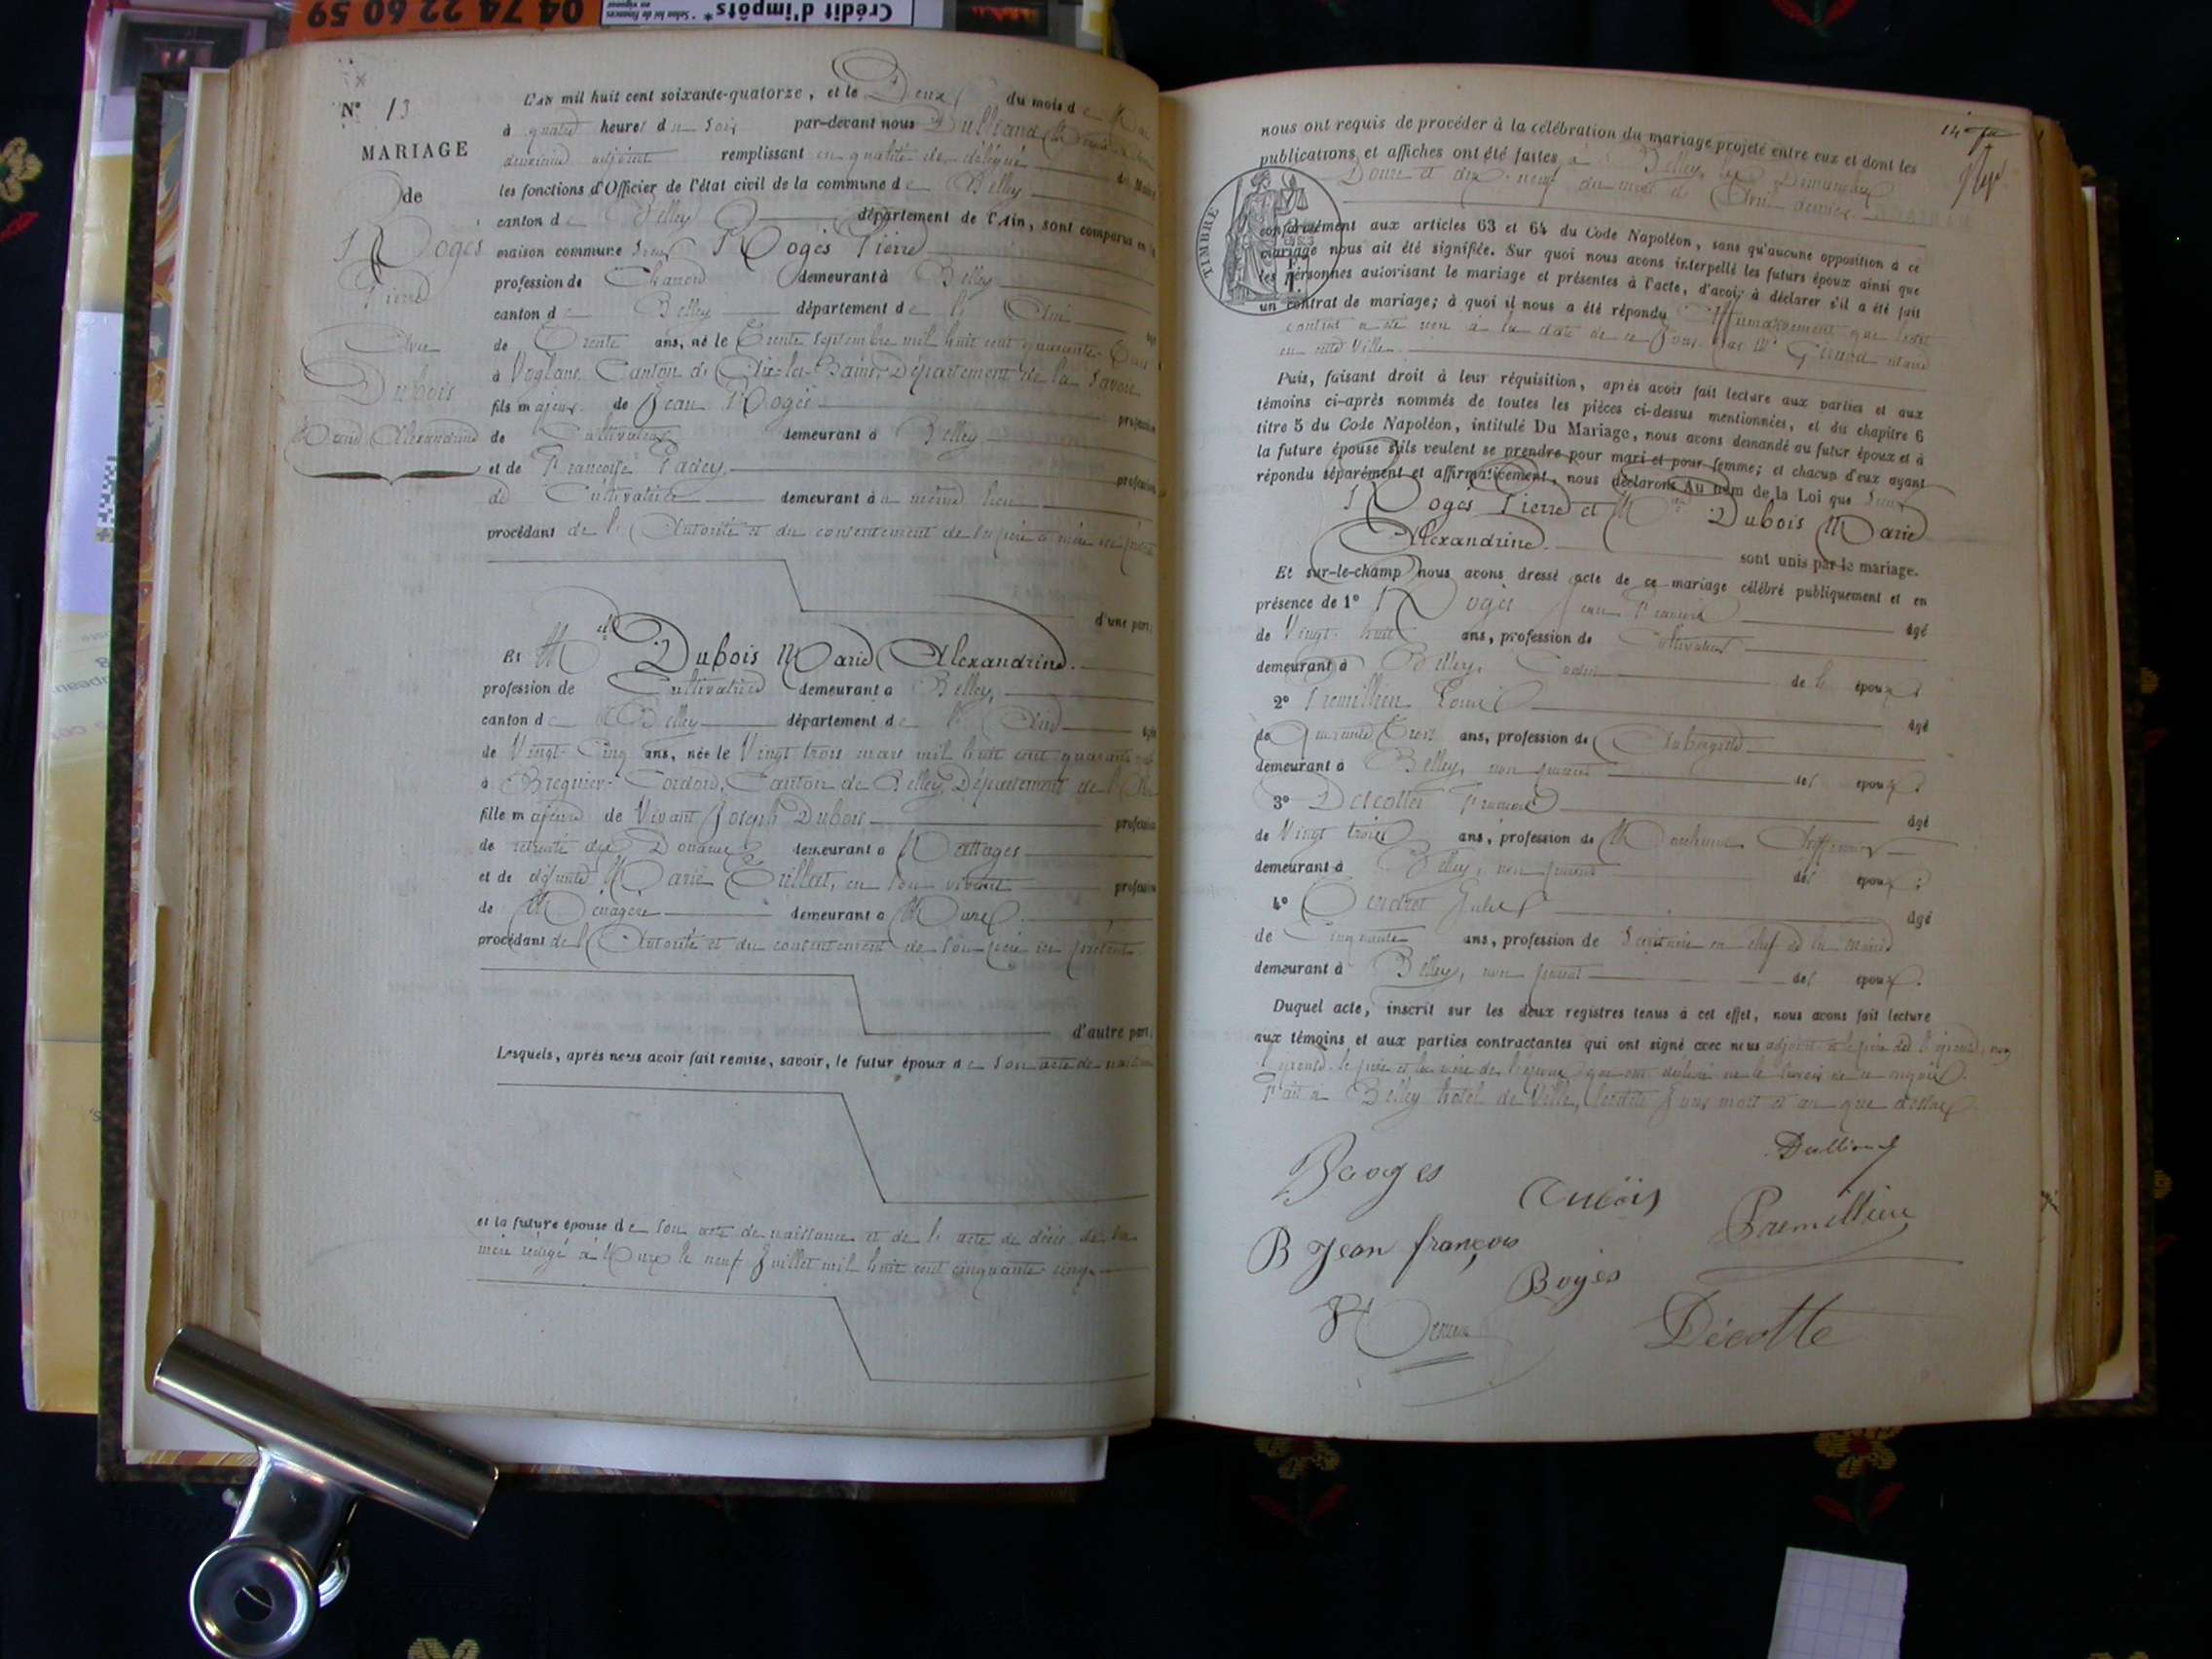 04 74 22 60 59
Crédit d'impôts*
* Selon loi de finances
en vigueur
N° 13
MARIAGE
de
Rogès
Pierre
Avec
Dubois
Marie Alexandrine
L'AN mil huit cent soixante-quatorze, et le Deux du mois de Mai
à quatre heures du soir par-devant nous Dulliand
deuxième adjoint remplissant en qualité de délégué du Maire
les fonctions d'Officier de l'état civil de la commune de Belley
canton de Belley département de l'Ain, sont comparus en la
maison commune sieur Rogès Pierre
profession de Charron demeurant à Belley
canton de Belley département de l' Ain âgé
de Trente ans, né le Trente septembre mil huit cent quarante-trois
à Voglans Canton de Aix-les-Bains, Département de la Savoie
fils majeur de Jean Rogès profession
de Cultivateur demeurant à Belley
et de Françoise Padey profession
de Cultivatrice demeurant au même lieu
procédant de l'Autorité et du consentement de ses père et mère ici présents
d'une part;
Et Mlle Dubois Marie Alexandrine.
profession de Cultivatrice demeurant à Belley,
canton de Belley département de l' Ain âgée
de Vingt-Cinq ans, née le Vingt trois mars mil huit cent quarante neuf
à Bregnier-Cordon, Canton de Belley, Département de l'Ain
fille majeure de Vivant Joseph Dubois profession
de retraité des Douanes demeurant à Nattages
et de défunte Marie Guillet, en son vivant profession
de Ménagère demeurant à Murs
procédant de l'Autorité et du consentement de son père ici présent.
d'autre part;
Lesquels, après nous avoir fait remise, savoir, le futur époux de son acte de naissance
et la future épouse de son acte de naissance et de l'acte de décès de sa
mère rédigé à Murs le neuf Juillet mil huit cent cinquante cinq
14
nous ont requis de procéder à la célébration du mariage projeté entre eux et dont les
publications et affiches ont été faites à Belley, les Dimanches
Douze et dix-neuf du mois de Avril dernier
TIMBRE
conformément aux articles 63 et 64 du Code Napoléon, sans qu'aucune opposition à ce
mariage nous ait été signifiée. Sur quoi nous avons interpellé les futurs époux ainsi que
les personnes autorisant le mariage et présentes à l'acte, d'avoir à déclarer s'il a été fait
un contrat de mariage; à quoi il nous a été répondu Affirmativement que ledit
contrat a été reçu à la date de ce Jour par Me Girard notaire
en cette Ville.
Puis, faisant droit à leur réquisition, après avoir fait lecture aux parties et aux
témoins ci-après nommés de toutes les pièces ci-dessus mentionnées, et du chapitre 6
titre 5 du Code Napoléon, intitulé Du Mariage, nous avons demandé au futur époux et à
la future épouse s'ils veulent se prendre pour mari et pour femme; et chacun d'eux ayant
répondu séparément et affirmativement, nous déclarons Au nom de la Loi que sieur
Rogès Pierre et Mlle Dubois Marie
Alexandrine. sont unis par le mariage.
Et sur-le-champ nous avons dressé acte de ce mariage célébré publiquement et en
présence de 1° Rogès Jean François âgé
de Vingt-huit ans, profession de Cultivateur
demeurant à Belley, Cousin de l' époux;
2° Premillieu Louis âgé
de Quarante Trois ans, profession de Aubergiste
demeurant à Belley, non parent des époux;
3° Decotte François âgé
de Vingt trois ans, profession de
demeurant à Belley, non parent des époux;
4° Jules âgé
de Cinquante ans, profession de Secrétaire en chef de la mairie
demeurant à Belley, non parent des époux.
Duquel acte, inscrit sur les deux registres tenus à cet effet, nous avons fait lecture
aux témoins et aux parties contractantes qui ont signé avec nous adjoint et le père de l'épouse, non
l'épouse, le père et la mère de l'époux qui ont déclaré ne le savoir de ce requis.
Fait à Belley hôtel de Ville, lesdits Jour mois et an que dessus.
Dulliand
Baoges
Dubois
Premillieu
B Jean françois
Boges
Décotte